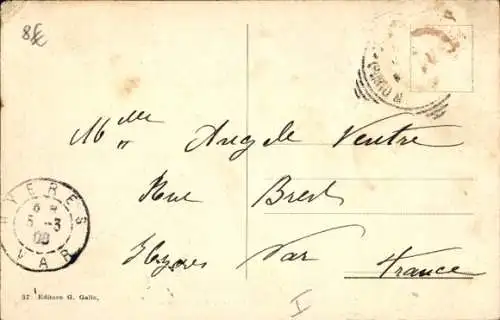 8£
Mlle Angele Ventre
Rue Brest
Hyeres Var
France
HYERES
3-3
08
VAR
37 Editore G. Gallo,
I